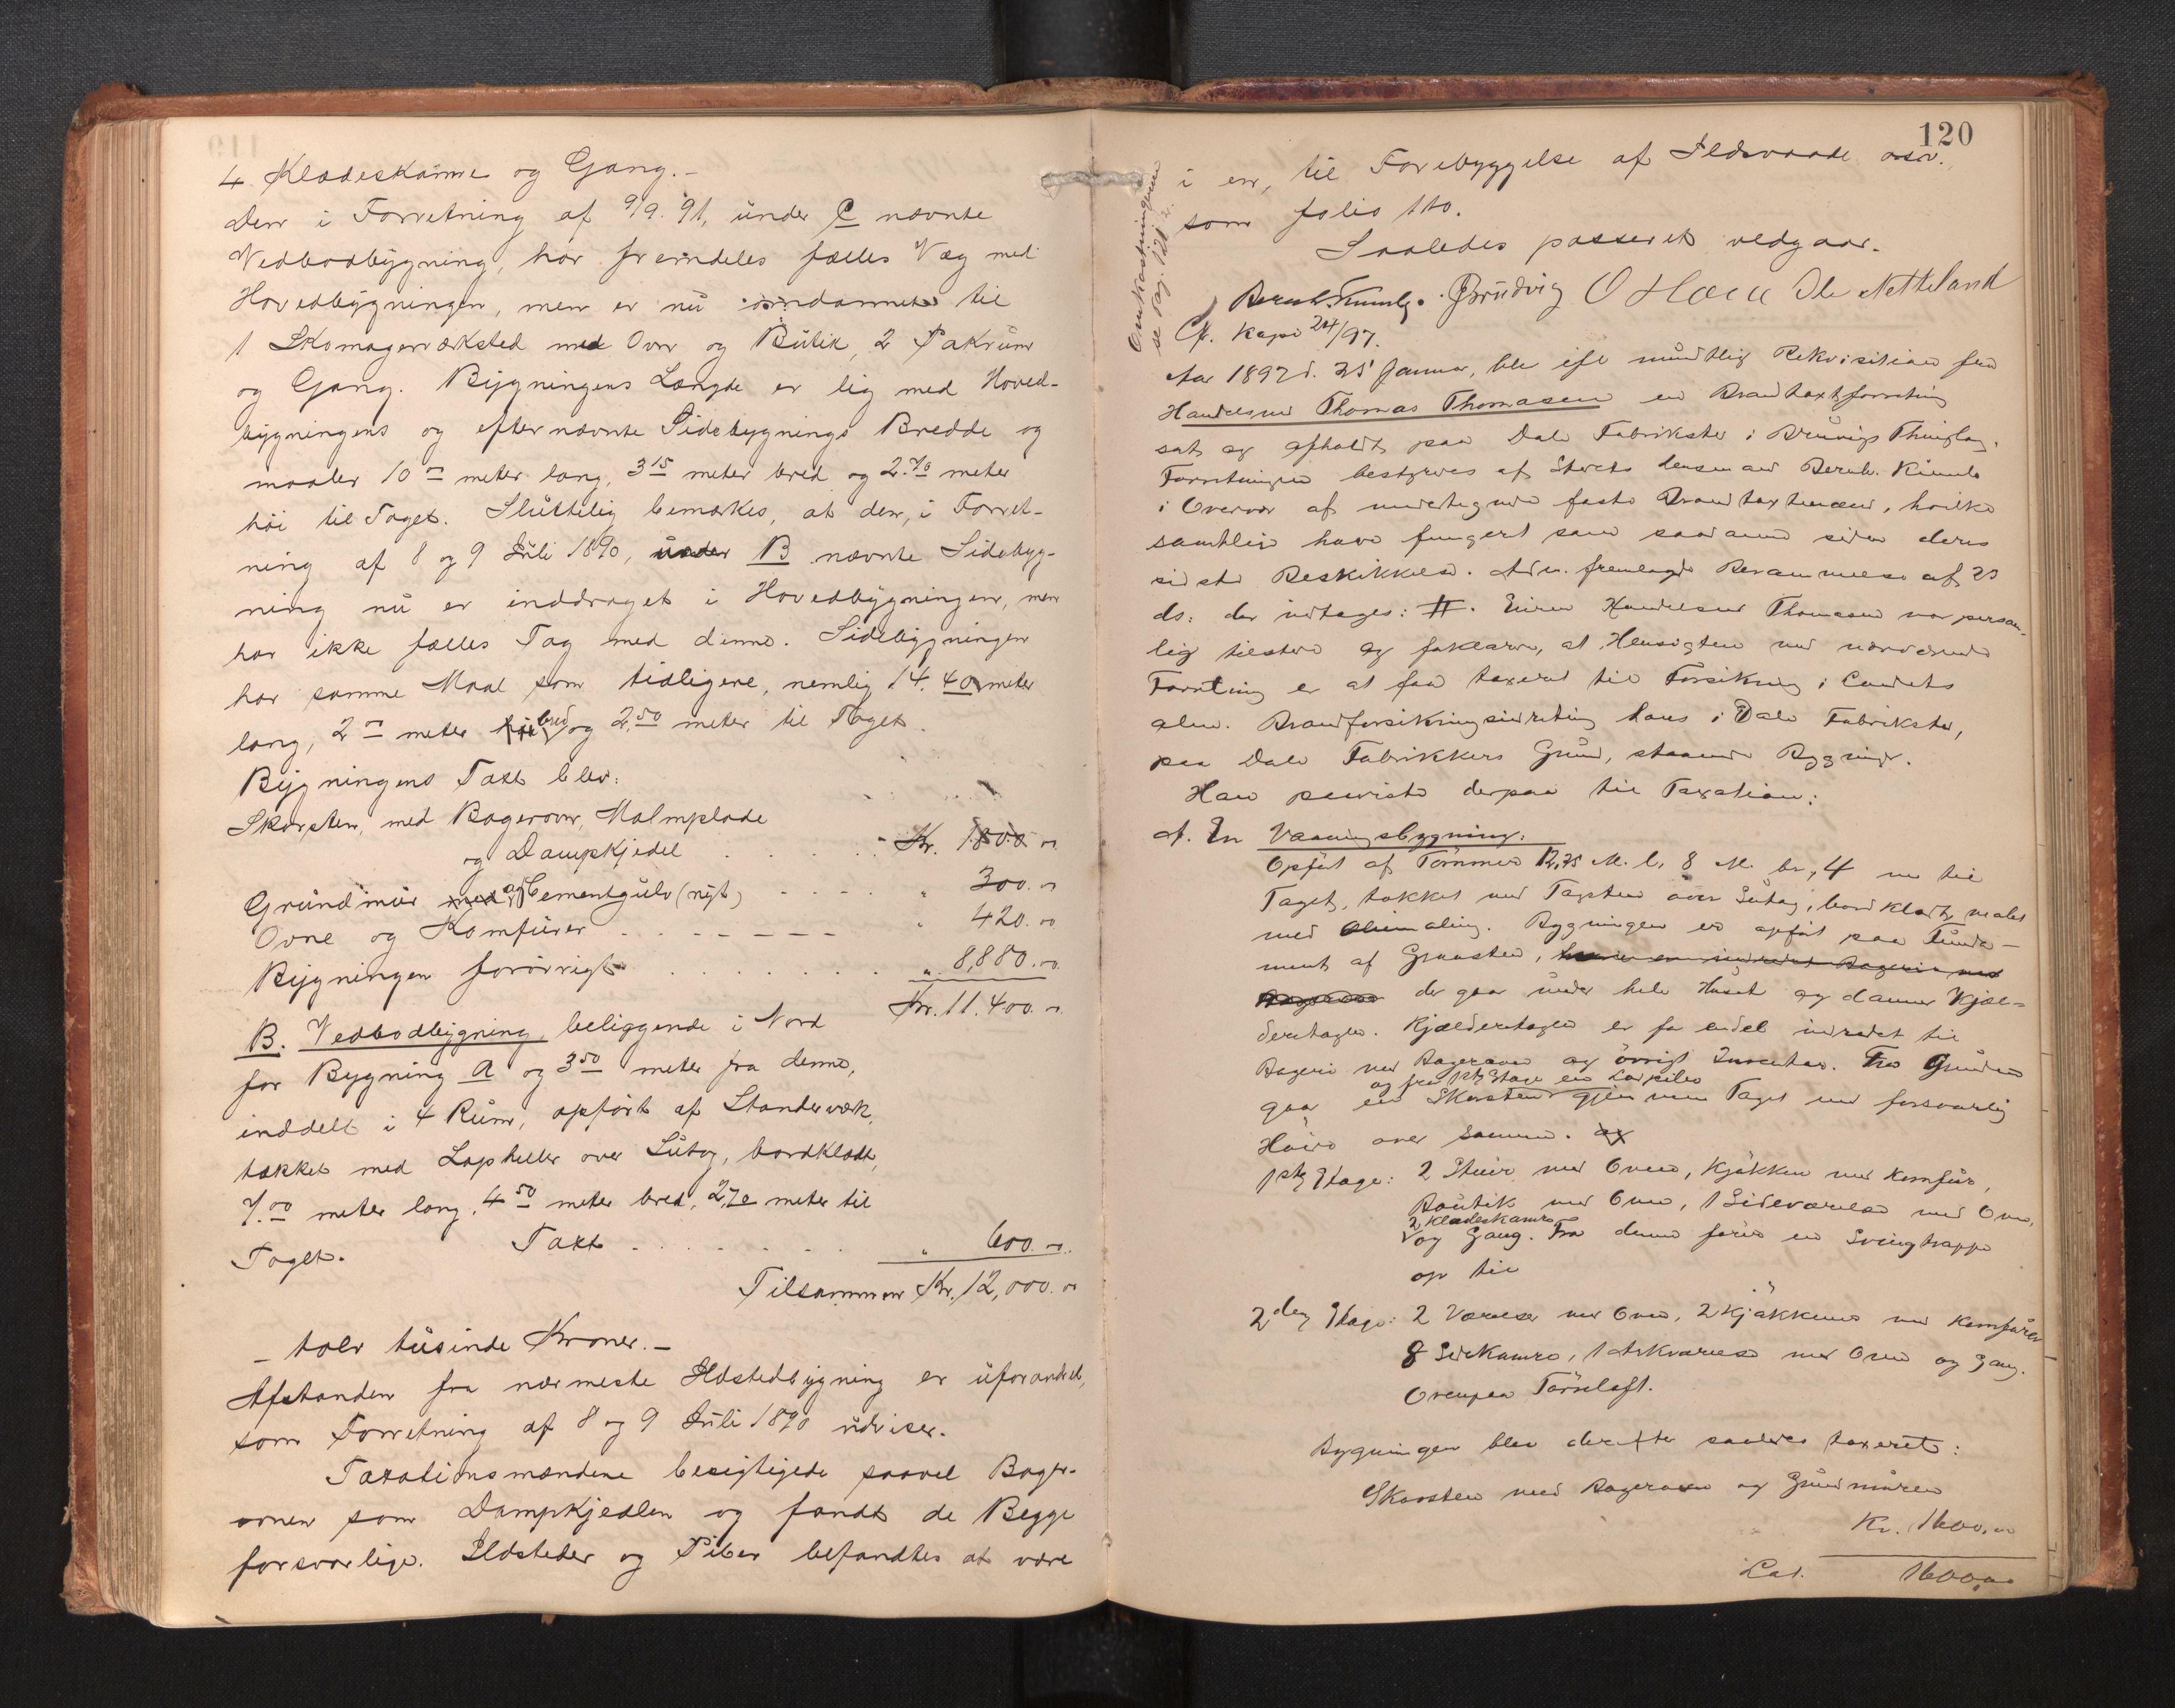 4 Klædeskamre og Gang.-
Den i Forretning af 9/9. 91, under C nævnte
Vedbodbygning, har fremdeles fælles Væg med
Hovedbygningen, men er nu omdannet til
1 Skomagerværksted med Ovn og Butik, 2 Pakrum
og Gang. Bygningens Længde er lig med Hoved-
bygningens og efternævnte Sidebygnings Bredde og
maaler 10 00 meter lang, 3 15 meter bred og 2.70 meter
høi til Taget. Sluttelig bemærkes, at den, i Forret-
ning af 8 og 9 Juli 1890, under B nævnte Sidebyg-
ning nu er inddraget i Hovedbygningen, men
har ikke fælles Tag med denne. Sidebygningen
har samme Maal som tidligere, nemlig 14.40 meter
lang, 2 00 meter bred og 2.50 meter til Taget.
Bygningens Taxt blev:
Skorsten, med Bagerovn, Malmplade
og Dampkjedel . . . . . Kr. 1800.00
Grundmur og Cementgulv (nyt) - - - - " 300.00
Ovne og Komfurer - - - - - - " 420.00
Bygningen forøvrigt . . . . . . " 8,880.00
Kr. 11.400.00
B. Vedbodbygning, beliggende i Nord
for Bygning A og 3 50 meter fra denne,
inddelt i 4 Rum, opført af Standerværk,
tækket med Lapheller over Sutag, bordklædt,
7.00 meter lang, 4 50 meter bred, 2,70 meter til
Taget. Taxt . . . . . . . " 600.00
Tilsammen Kr. 12,000.00
- tolv tusinde Kroner. -
Afstanden fra nærmeste Ildstedbygning er uforandret,
som Forretning af 8 og 9 Juli 1890 udviser.
Taxationsmændene besigtigede saavel Bager-
ovnen som Dampkjedlen og fandt de Begge
forsvarlige. Ildsteder og Piber befandtes at være
120
i en, til Forebyggelse af Ildsvaade osv.
som folio 110.
Saaledes passeret vedgaar.
Omkostningerne
se pag. 121
Brudvig O Helle Ole Nætteland
Cf. Kopi 24/97.
Aar 1897 d. 25 Januar, blev efter mundtlig Rekvisition fra
Handelsmd Thomas Thomasen en Brandtaxtforretning
sat og afholdt paa Dale Fabrikster i Bruvigs Thinglag.
Forretningen bestyredes af Stedets Lensmand Bernh.
i Overvær af undertegnede faste Brandtaxtmænd, hvilke
samtlige have fungert som saadanne siden deres
sidste Beskikkelse. Adm. fremlagde Berammelse af 23
ds: der indtages: #. Eieren Handelsmd Thomasen var person-
lig tilstede og forklarer, at Hensigten med nærværende
Forretning er at faa taxeret til Forsikring i Landets
alm. Brandforsikringsindretning hans i Dale Fabrikster,
paa Dale Fabrikkers Grund, staaende Bygning.
Han paaviste derpaa til Taxation:
A. En Vaaningsbygning:
Opført af Tømmer 12,75 M. l, 8 M. br, 4 m til
Taget, tækket med Tagsten over Sutag, bordklædt, malet
med Oliemaling. Bygningen er opført paa Funda-
ment af Graasten,
der gaar under hele Huset og danner Kjæl-
deretagen. Kjælderetagen er for endel indredet til
Bageri med Bagerovn og øvrigt Inventar. Fra Grunden
og fra 1ste Etage en Ladpibe
gaar en Skorsten gjennem Taget med forsvarlig
Høide over samme.
1ste Etage: 2 Stuer med Ovne, Kjøkken med Komfur,
Boutik med Ovn, 1 Sideværelse med Ovn,
2 Klædeskamre
og Gang. Fra denne fører en Svingtrappe
op til
2den Etage: 2 Værelser med Ovne, 2 Kjøkkener med Komfurer
8 Sidekamre, 1 Arkværelse med Ovn og Gang.
Ovenpaa Tørreloft.
Bygningen blev derefter saaledes taxeret:
Skorsten med Bagerovn og Grundmuren
Kr. 1600.00
Lat. 1600,00